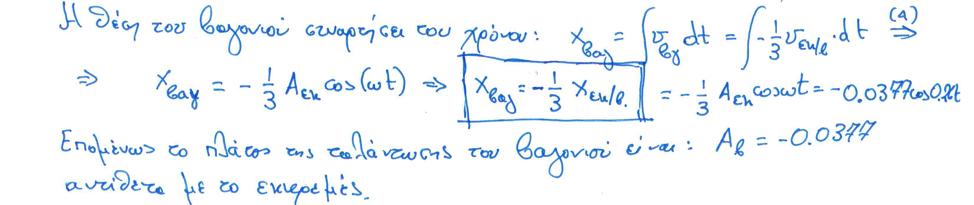 Η θέση του βαγονιού συναρτήσει του χρόνου: x_βαγ = ∫ υ_βγ dt = ∫ -1/3 υ_εκ/ε · dt (4) ⇒
⇒ x_βαγ = - 1/3 A_εκ cos(ωt) ⇒ x_βαγ = - 1/3 x_εκ/ε. = - 1/3 A_εκ cosωt = -0.0377cos
Επομένως το πλάτος της ταλάντωσης του βαγονιού είναι: A_β = -0.0377
αντίθετο με το εκκρεμές.